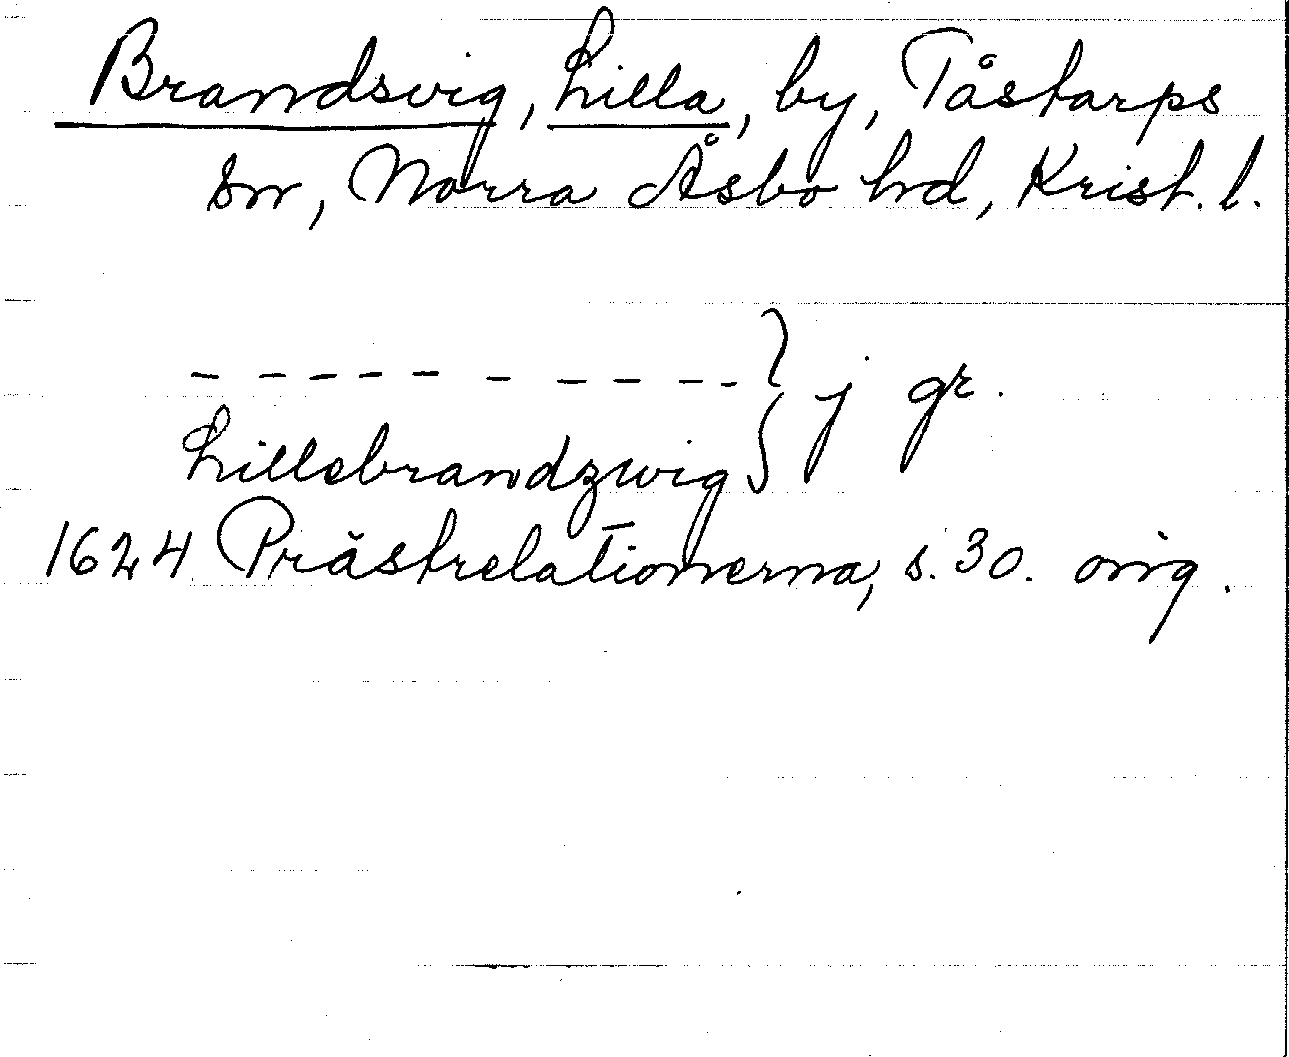 Brandsvig, Lilla, by, Tåstarps
sn, Norra Åsbo hd, Krist. l.
- - - - - - - - - - } j gr.
Lillebrandzwig
1624 Prästrelationerna, s. 30. orig.